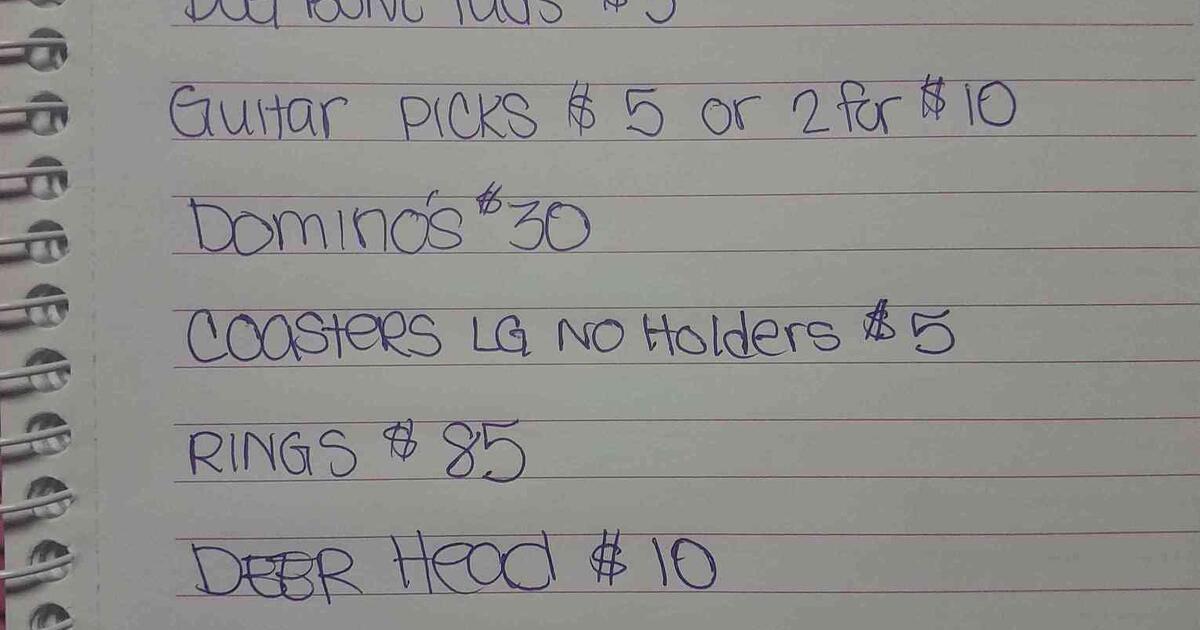 $5
Guitar PICKS $5 or 2 for $10
Domino's $30
Coasters LG NO Holders $5
RINGS $85
DEER Head $10